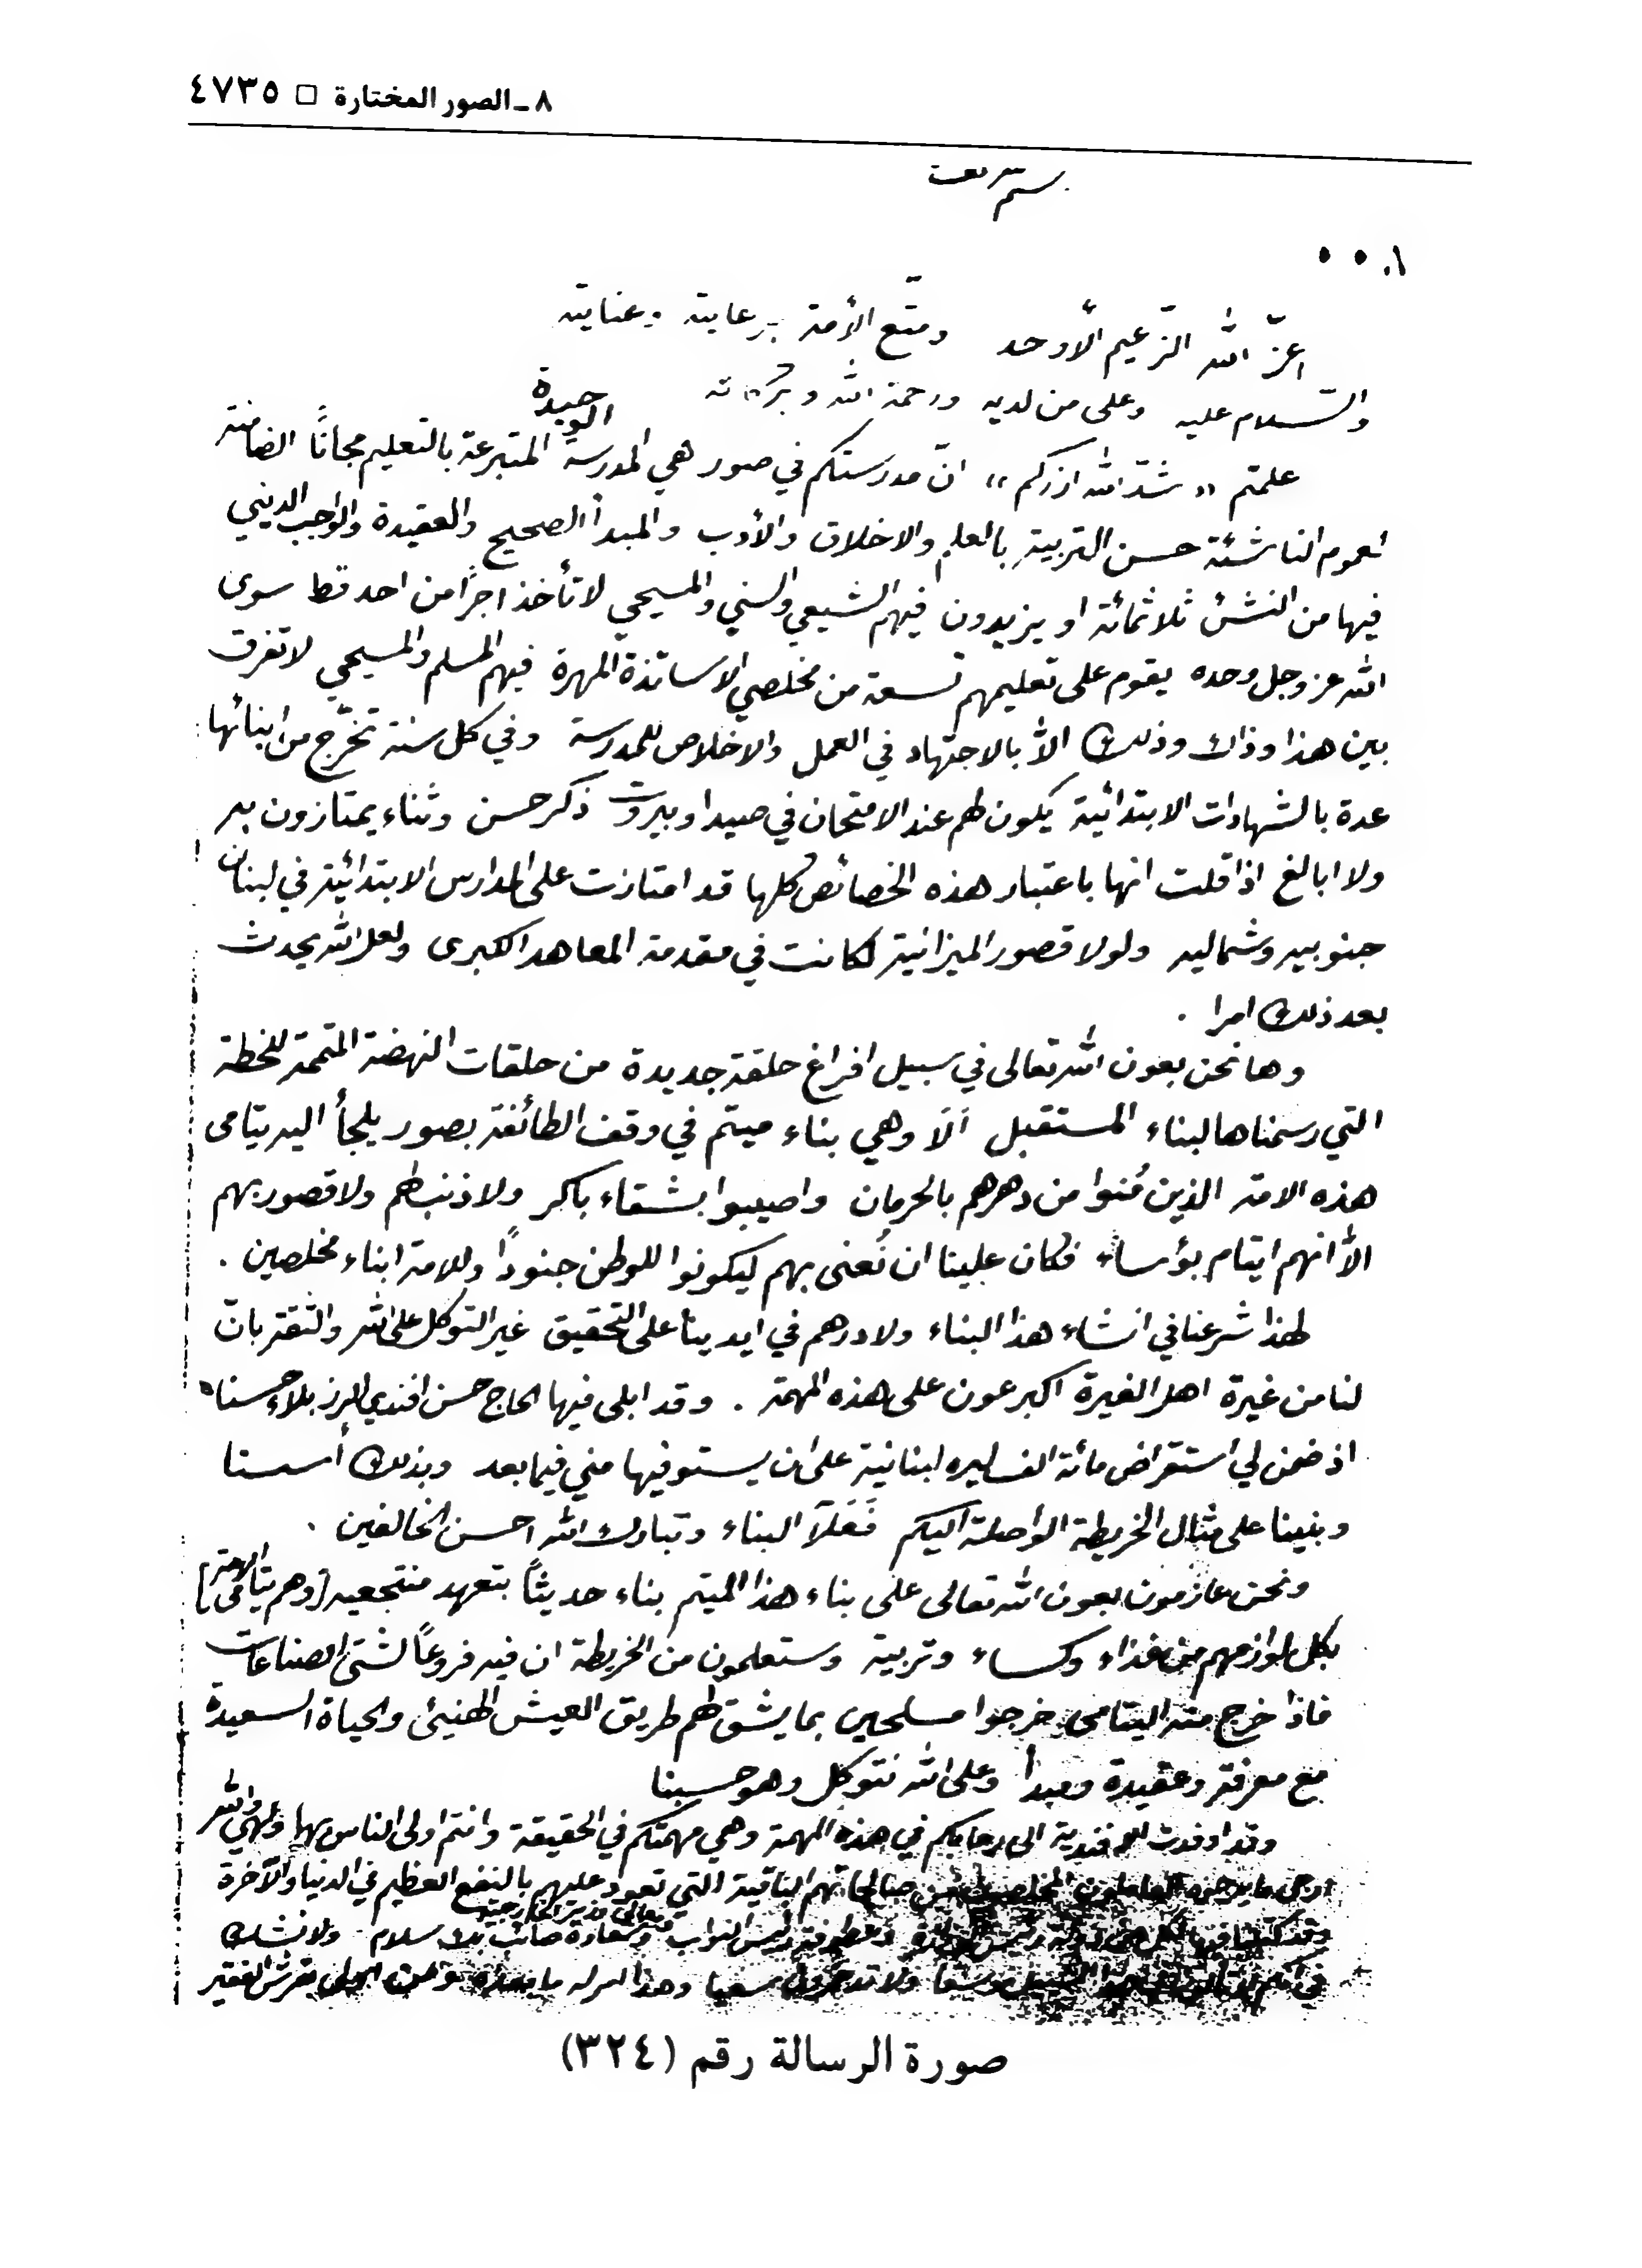 ٨ـ الصور المختارة □ ٤٧٣٥
١ . ٠ ٠
اعزّ الله الزّعيم الأوحد ومتّع الأمة برعايته وعنايته
والسّلام عليه وعلى من لديه ورحمة الله وبركاته
علمتم «شدّ الله ازركم» انّ مدرستكم في صور هي المدرسة الوحيدة المتبرعة بالتعليم مجانًا الضامنة
لعموم الناشئة حسن التربية بالعلم والاخلاق والأدب والمبدأ الصحيح والعقيدة والواجب الديني
فيها من النشئ ثلاثمائة او يزيدون فيهم الشيعي والسني والمسيحي لا تأخذ اجرًا من احد قط سوى
الله عز وجل وحده يقوم على تعليمهم تسعة من مخلصي الاساتذة المهرة فيهم المسلم والمسيحي لا تفرق
بين هذا وذاك وذلك الاّ بالاجتهاد في العمل والاخلاص للمدرسة وفي كل سنة تخرّج من ابنائها
عدة بالشهادات الابتدائية يكون لهم عند الامتحان في صيدا وبيروت ذكر حسن وثناء يمتازون به
ولا ابالغ اذا قلت انها باعتبار هذه الخصائص كلها قد امتازت على المدارس الابتدائية في لبنان
جنوبيه وشماليه ولولا قصور الميزانية لكانت في مقدمة المعاهد الكبرى ولعل الله يحدث
بعد ذلك امرا .
وها نحن بعون الله تعالى في سبيل افراغ حلقة جديدة من حلقات النهضة المتممة للخطة
التي رسمناها لبناء المستقبل اَلاَ وهي بناء ميتم في وقف الطائفة بصور يلجأ اليه يتامى
هذه الامة الذين مُنوا من دهرهم بالحرمان واصيبوا بشقاء باكر ولا ذنب لهم ولا قصور بهم
الاّ انهم ايتام بؤساء فكان علينا ان نُعنى بهم ليكونوا للوطن جنودًا وللامة ابناء مخلصين .
لهذا شرعنا في انشاء هذا البناء ولا درهم في ايدينا على التحقيق غير التوكل على الله والثقة بانّ
لنا من غيرة اهل الغيرة اكبر عون على هذه المهمة . وقد ابلى فيها الحاج حسن افندي الرز بلاءً حسنا
اذ ضمن لي استقراض مائة الف ليره لبنانية على ان يستوفيها مني فيما بعد وبذلك أسسنا
وبنينا على مثال الخريطة الواصلة اليكم فَعَلاَ البناء وتبارك الله احسن الخالقين .
ونحن عازمون بعون الله تعالى على بناء هذا الميتم بناء حديثاً بتعهد منتجعيه [وهم يتامى الامة]
بكل لوازمهم من غذاء وكساء وتربية وستعلمون من الخريطة ان فيه فروعاً لشتى الصناعات
فاذا خرج منه اليتامى خرجوا مسلحين بما يشق لهم طريق العيش الهنيئ والحياة السعيدة
مع معرفة وعقيدة ومبدأ وعلى الله نتوكل وهو حسبنا
وقد اوفدت الافندية الى رحابكم في هذه المهمة وهي مهمتكم في الحقيقة وانتم اولى الناس بها ولهي والله
ارجى ما يرجوه العاملون المخلصون من صالحاتهم الباقية التي تعود عليهم بالنفع العظيم في الدنيا والآخرة
رئيس النواب ومعالي وزير الخارجية وسعادة صائب بك سلام ولا نشك
سعيا وهذا امر له ما بعده
صورة الرسالة رقم (٣٢٤)